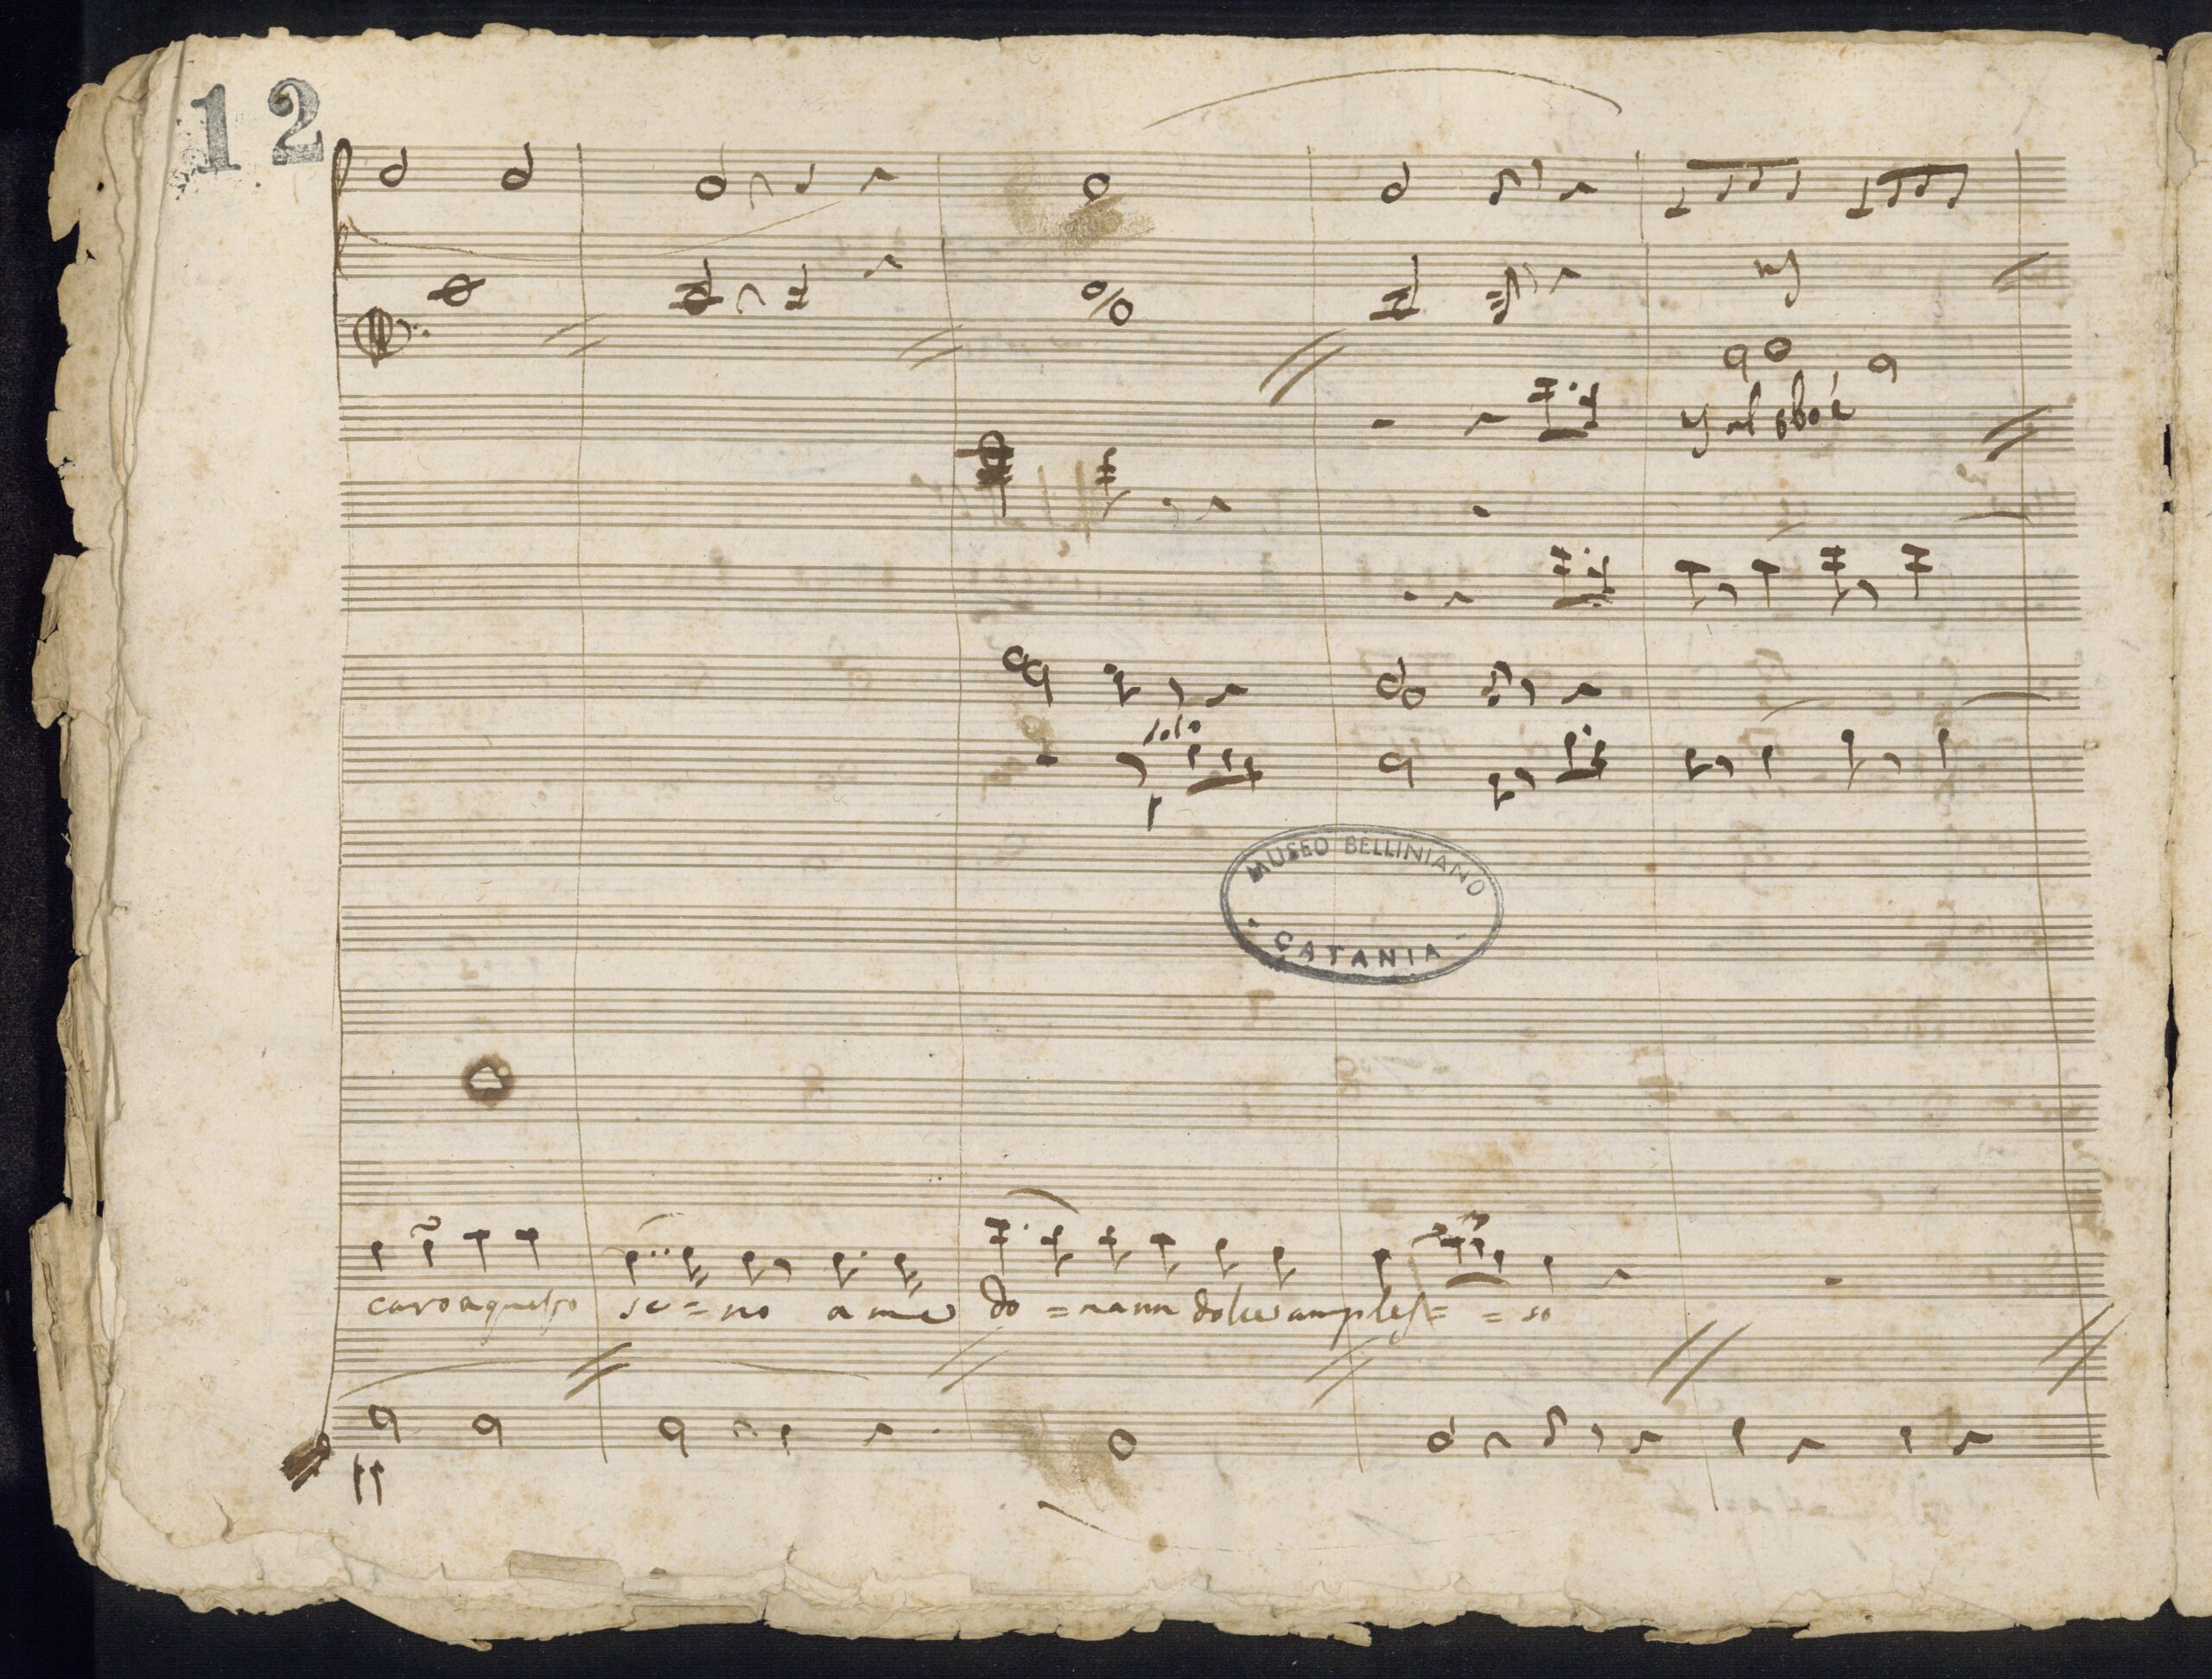 12
y al oboè
solo
p
MUSEO BELLINIANO
CATANIA
caro a questo se = no a me do = na un dolce amples = = so
pp